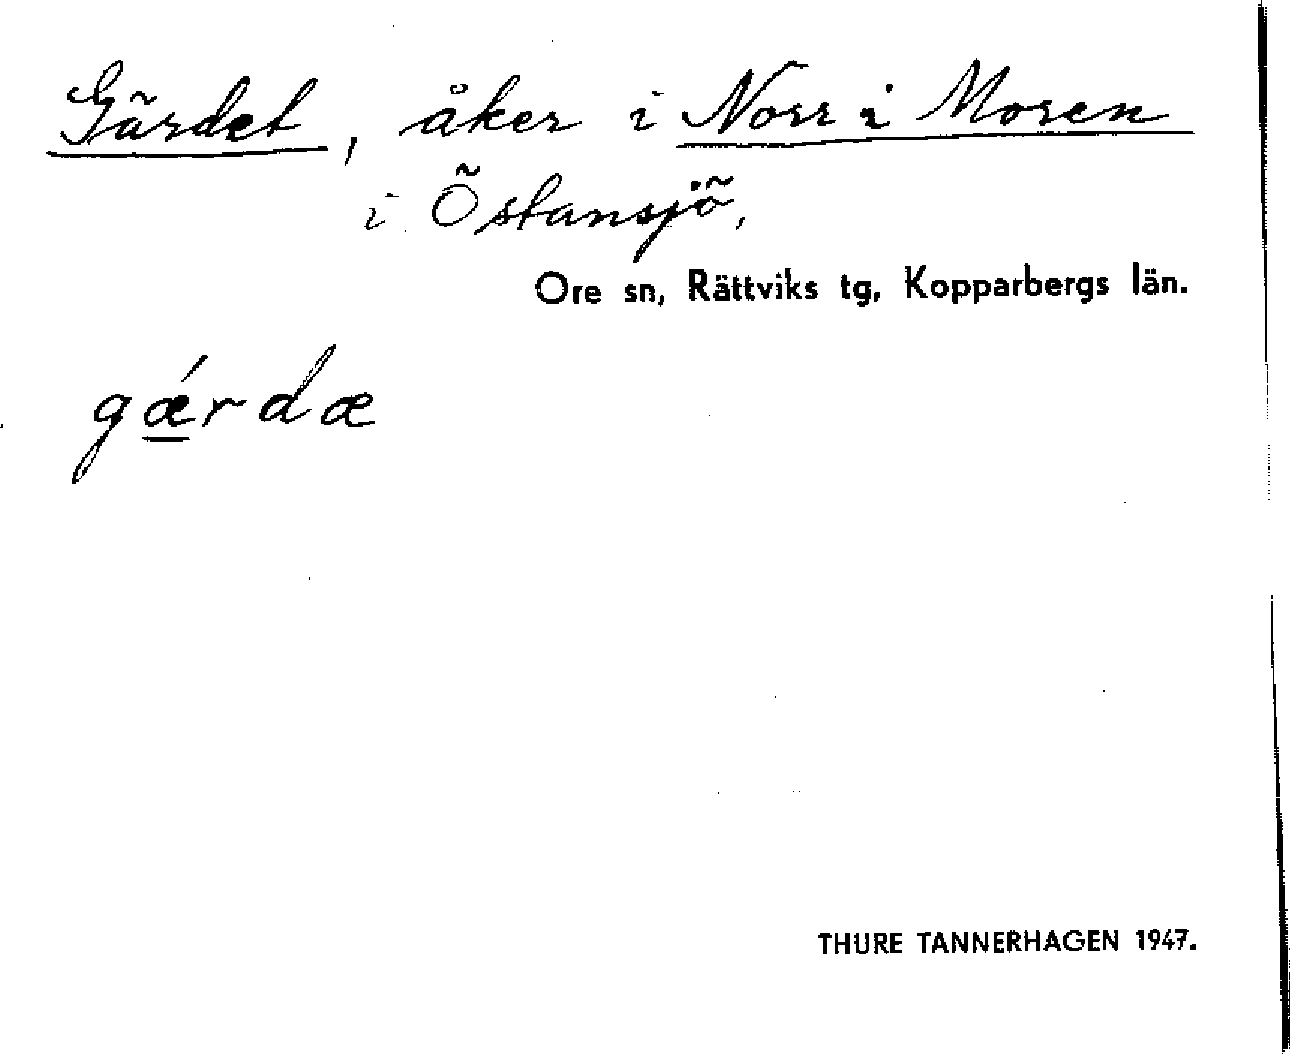 Gärdet, åker i Norr i Moren
i Östansjö,
Ore sn, Rättviks tg, Kopparbergs län.
gǽrdæ
THURE TANNERHAGEN 1947.